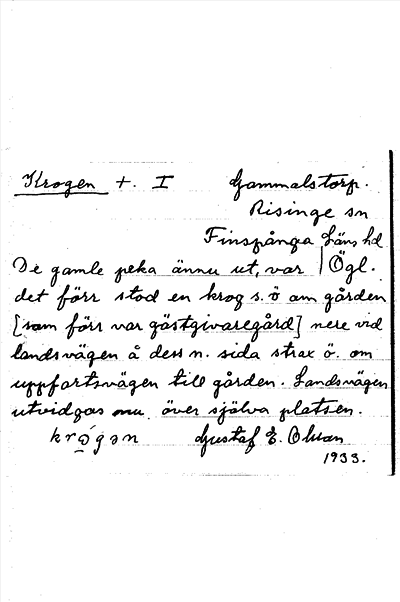 Krogen +. I Gammalstorp.
Risinge sn
Finspånga läns hd
De gamle peka ännu ut, var Ögl.
det förr stod en krog s. ö om gården
[som förr var gästgivaregård] nere vid
landsvägen å dess n. sida strax ö. om
uppfartsvägen till gården. Landsvägen
utvidgas nu över själva platsen.
krógən Gustaf E. Olsson
1933.